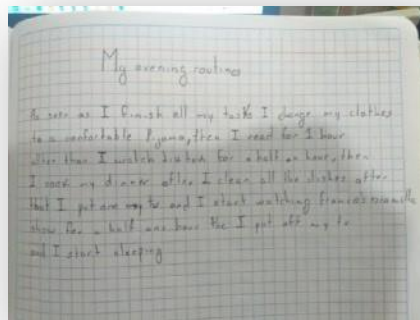 My evening routine
As soon as I finish all my tasks I change my clothes
to a confortable Pijama, then I read for 1 hour
after than I watch for a half an hour, then
I cook my dinner after I clean all the dishes after
that I put one my tv and I start watching
show for a half and hour the I put off my tv
and I start sleeping